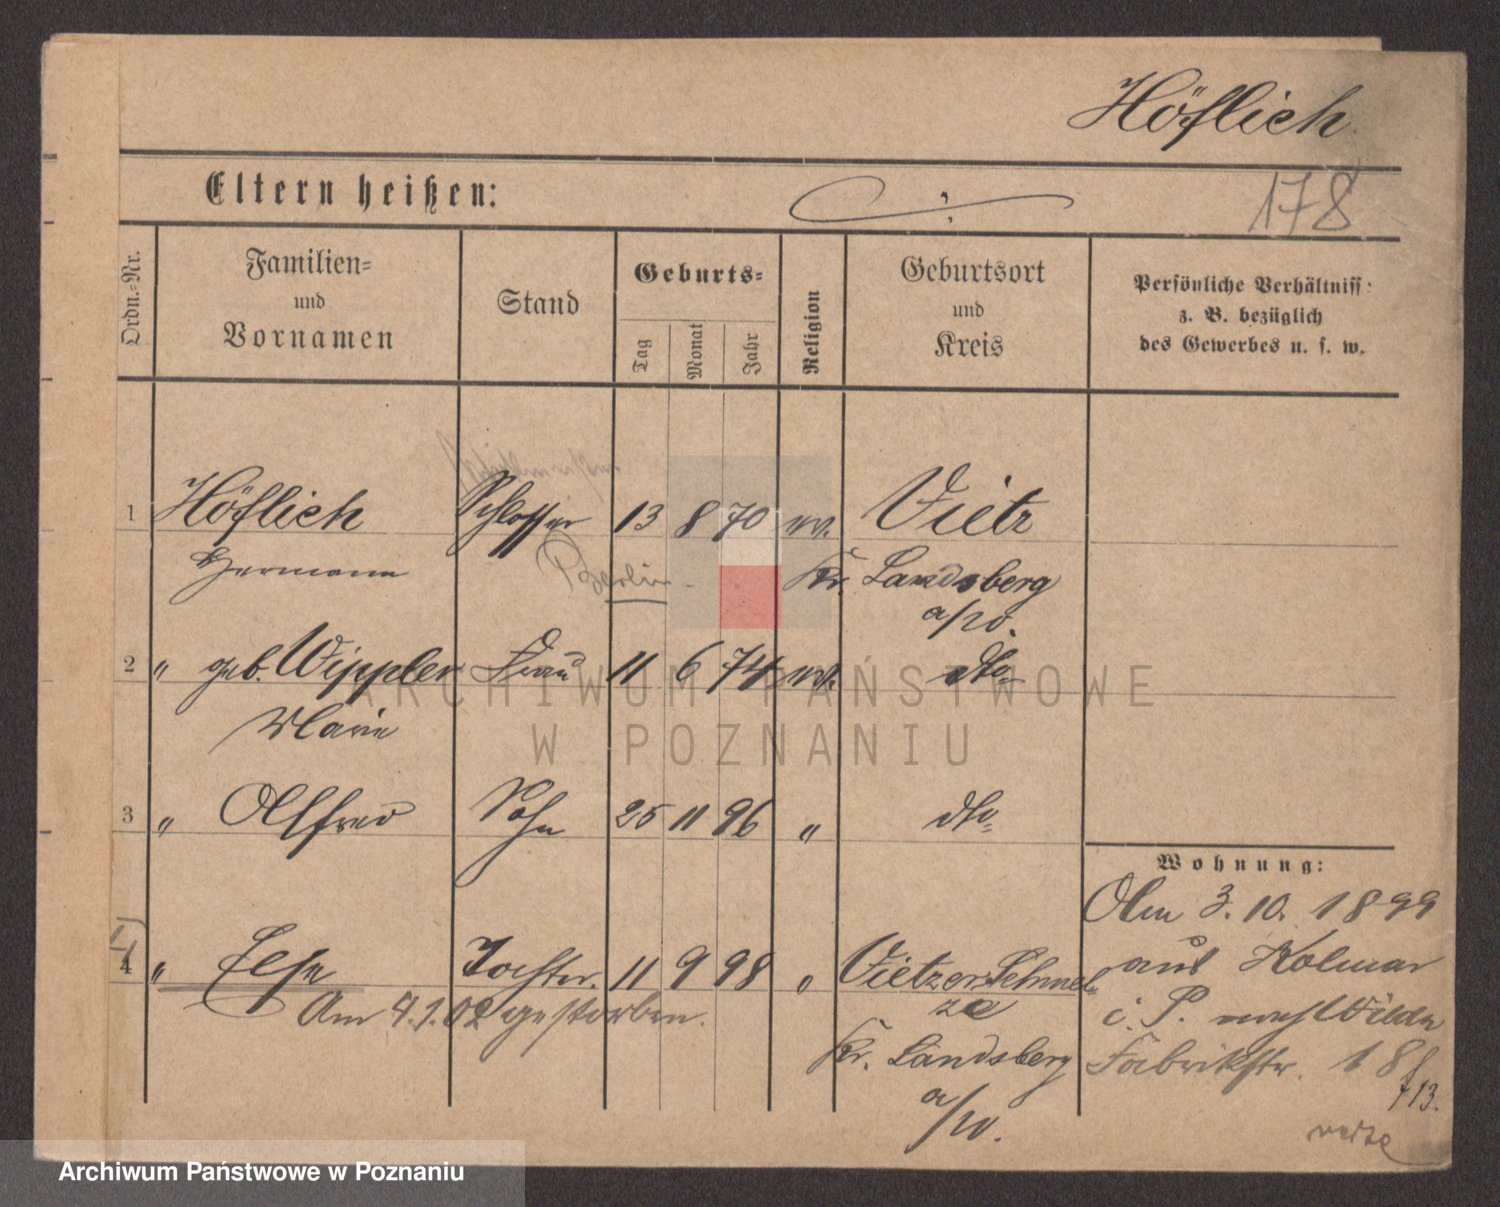 Höflich
178
Eltern heißen:
Ordn.-Nr.
Familien-
und
Vornamen
Stand
Geburts-
Tag
Monat
Jahr
Religion
Geburtsort
und
Kreis
Persönliche Verhältniss:
z. B. bezüglich
des Gewerbes u. s. w.
1 Höflich Schlosser 13 8 70 ev. Vietz
Hermann Berlin Kr. Landsberg
a/W.
2 " geb. Wippler Frau 11 6 74 ev. dto
Marie
3 " Alfred Sohn 25 11 96 " dto
Wohnung:
Am 3. 10. 1899
aus Kolmar
i. P. nach Wilda
Fabrikstr. 18
4 " Else Tochter 11 9 98 " Vietzer Schmel-
ze
Am 4.1.02 gestorben.
Kr. Landsberg
a/W.
713.
ARCHIWUM PAŃSTWOWE
W POZNANIU
Archiwum Państwowe w Poznaniu